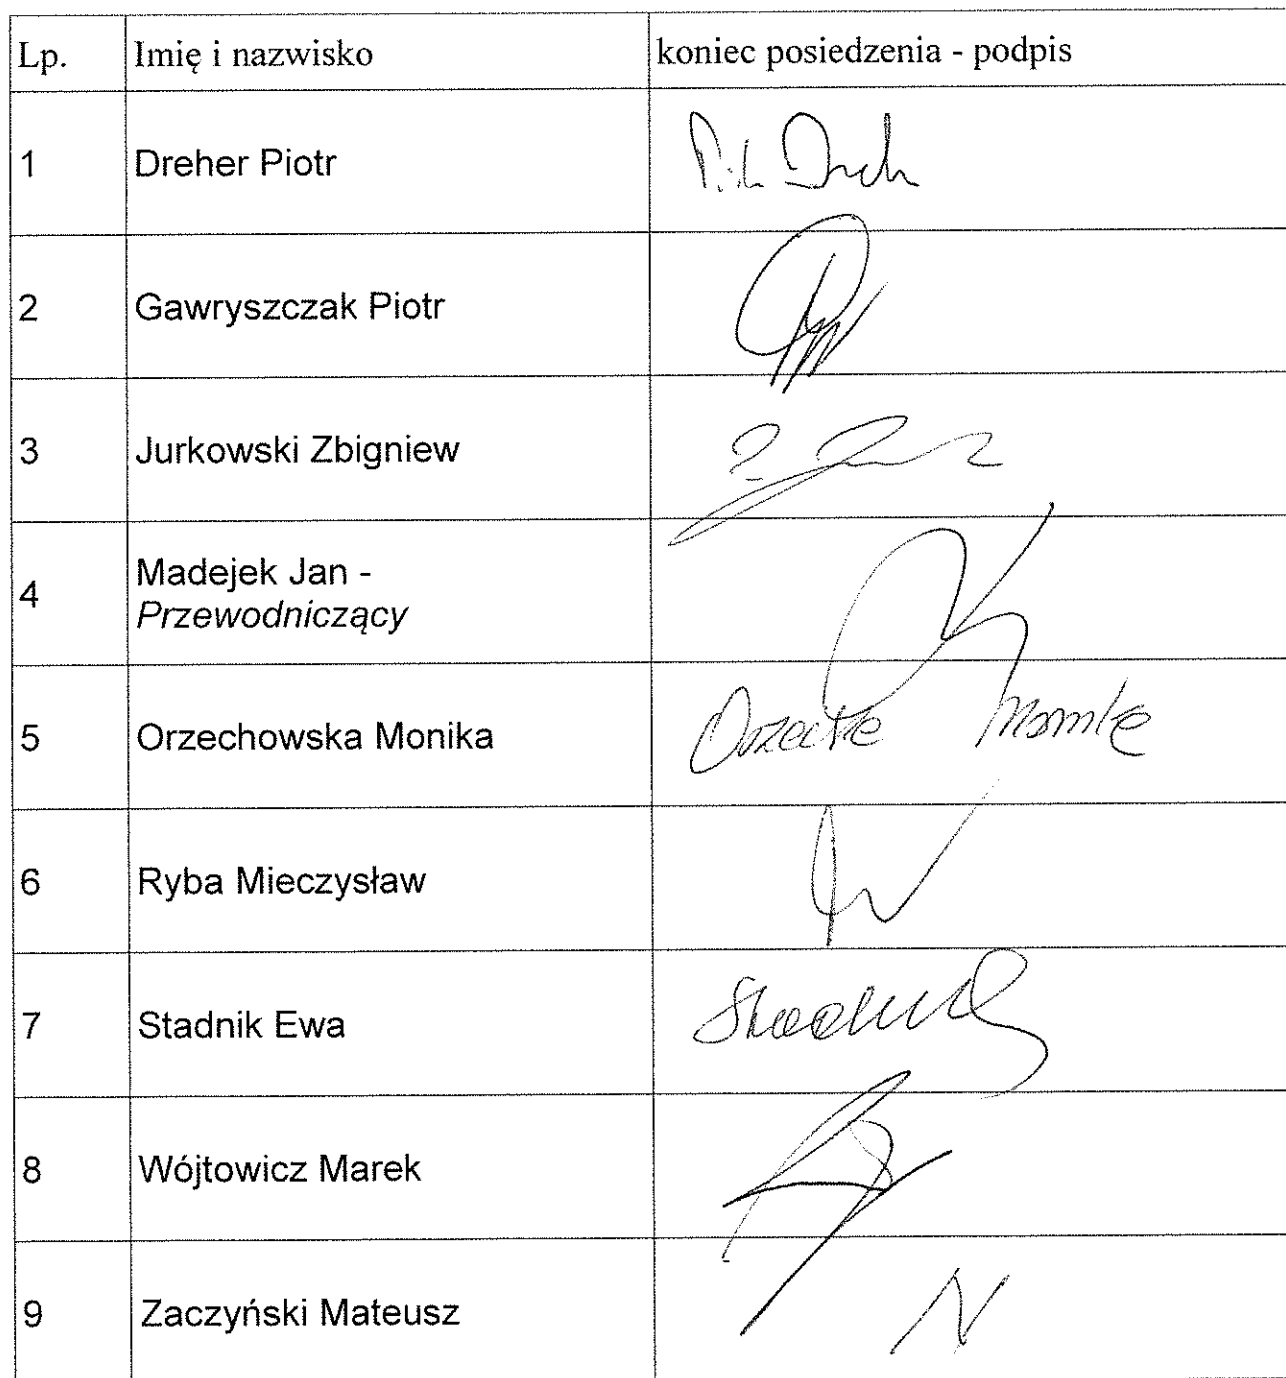 Lp. Imię i nazwisko koniec posiedzenia - podpis
1 Dreher Piotr
2 Gawryszczak Piotr
3 Jurkowski Zbigniew
4 Madejek Jan -
Przewodniczący
5 Orzechowska Monika
6 Ryba Mieczysław
7 Stadnik Ewa
8 Wójtowicz Marek
9 Zaczyński Mateusz N